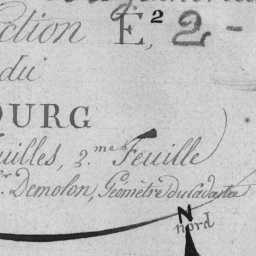 ction E², 2-
du
OURG
uilles, 2.me Feuille
r. Demolon, Géomètre du Cadastre
N
nord